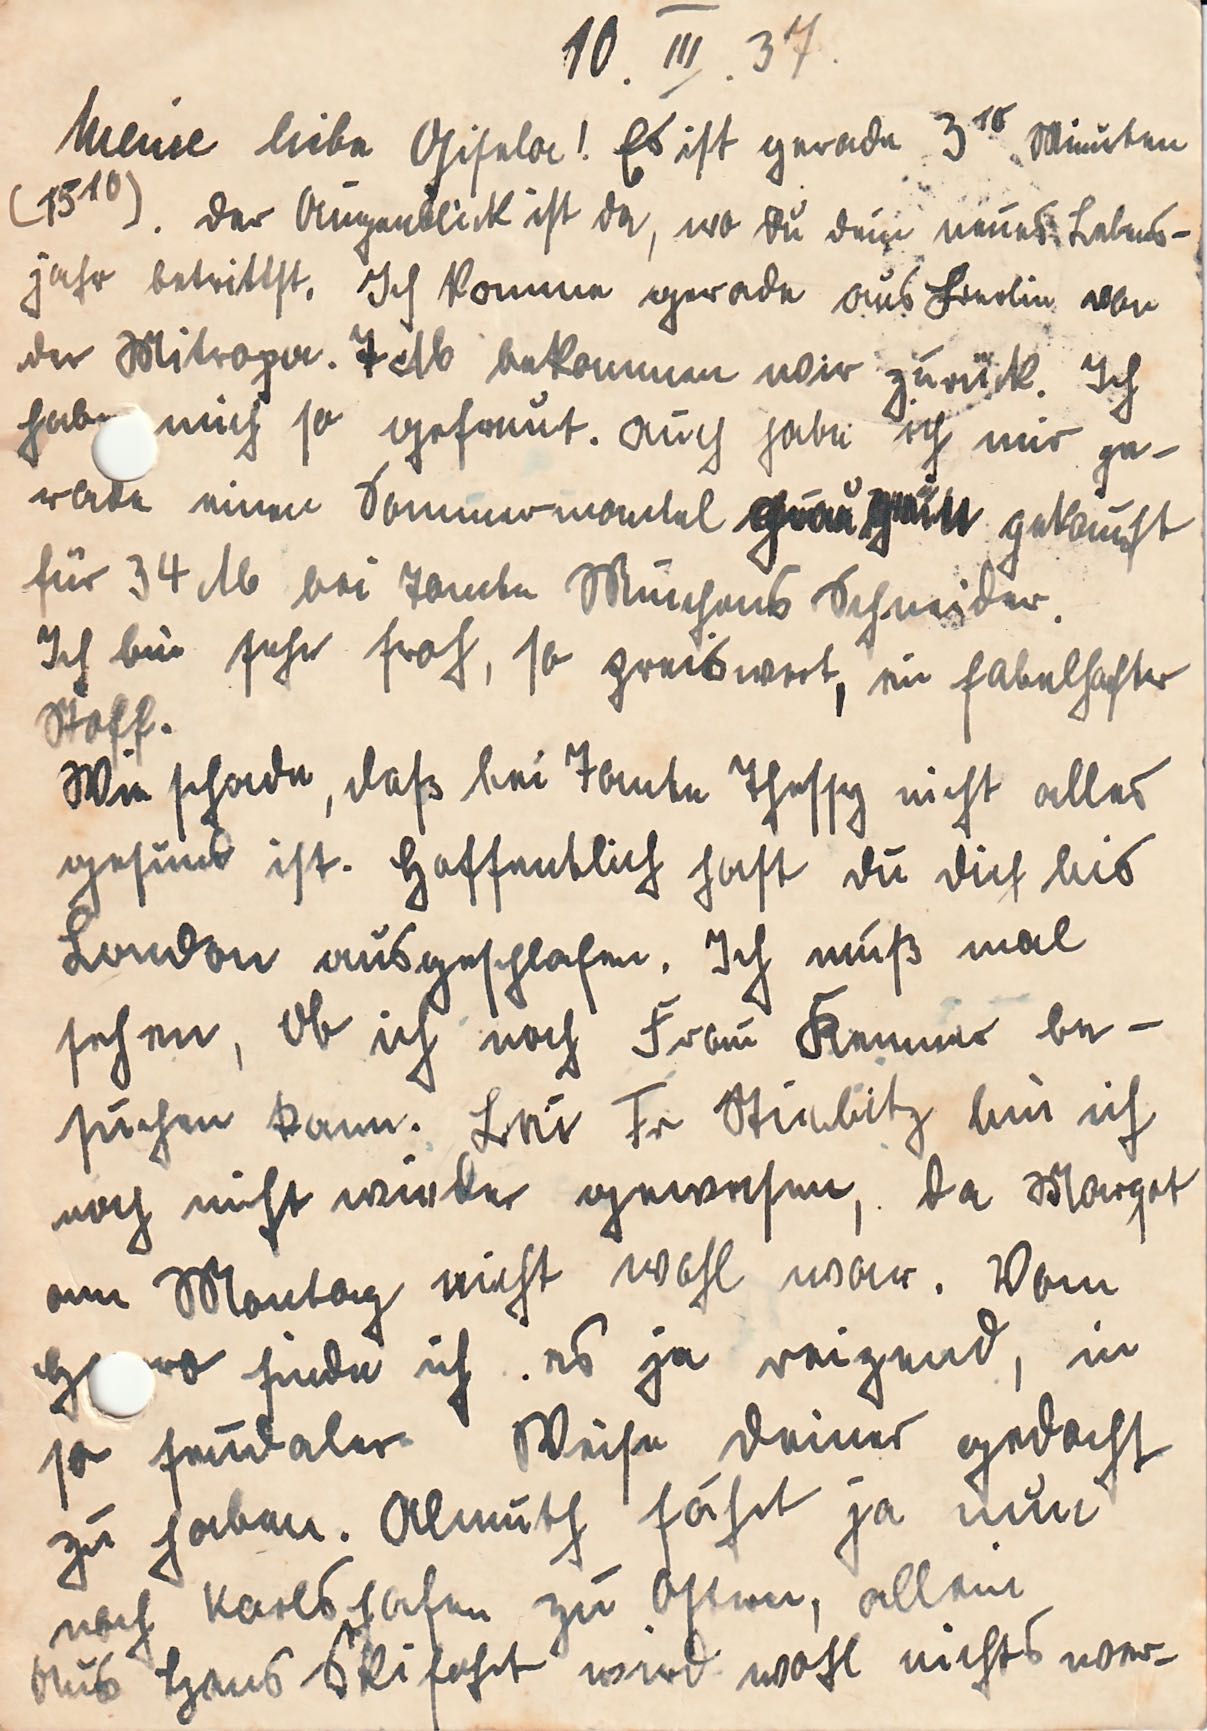 10. III. 37.
Meine liebe Gisela! Es ist gerade 3¹⁰ Minuten
(15¹⁰). der Augenblick ist da, wo du dein neues Lebens-
jahr betrittst. Ich komme gerade aus Berlin von
der Mitropa. 7 M bekommen wir zurück. Ich
habe mich so gefreut. Auch habe ich mir ge-
rade einen Sommermantel graugrün gekauft
für 34 M bei Tante Münchens Schneider.
Ich bin sehr froh, so preiswert, ein fabelhafter
Stoff.
Wie schade, daß bei Tante Thessy nicht alles
gesund ist. Hoffentlich hast du dich bis
London ausgeschlafen. Ich muß mal
sehen, ob ich noch Frau Kenner be-
suchen kann. Bei Fr Stiebitz bin ich
noch nicht wieder gewesen, da Margot
am Montag nicht wohl war. Vom
finde ich es ja reizend, in
so feudaler Weise deiner gedacht
zu haben. Almuth fährt ja nun
nach Karlshafen zu Ostern, allein
Aus Hans Skifahrt wird wohl nichts wer-